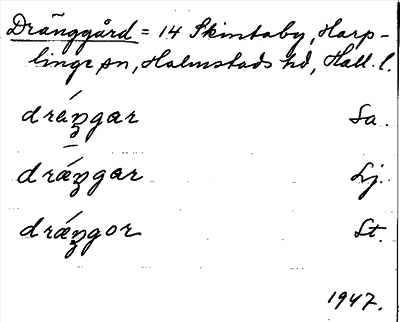 Dränggård = 14 Skintaby, Harp-
linge sn, Halmstads hd, Hall. l.
dráŋgar Sa.
drǽŋgar Lj.
drǽŋgor St.
1947.